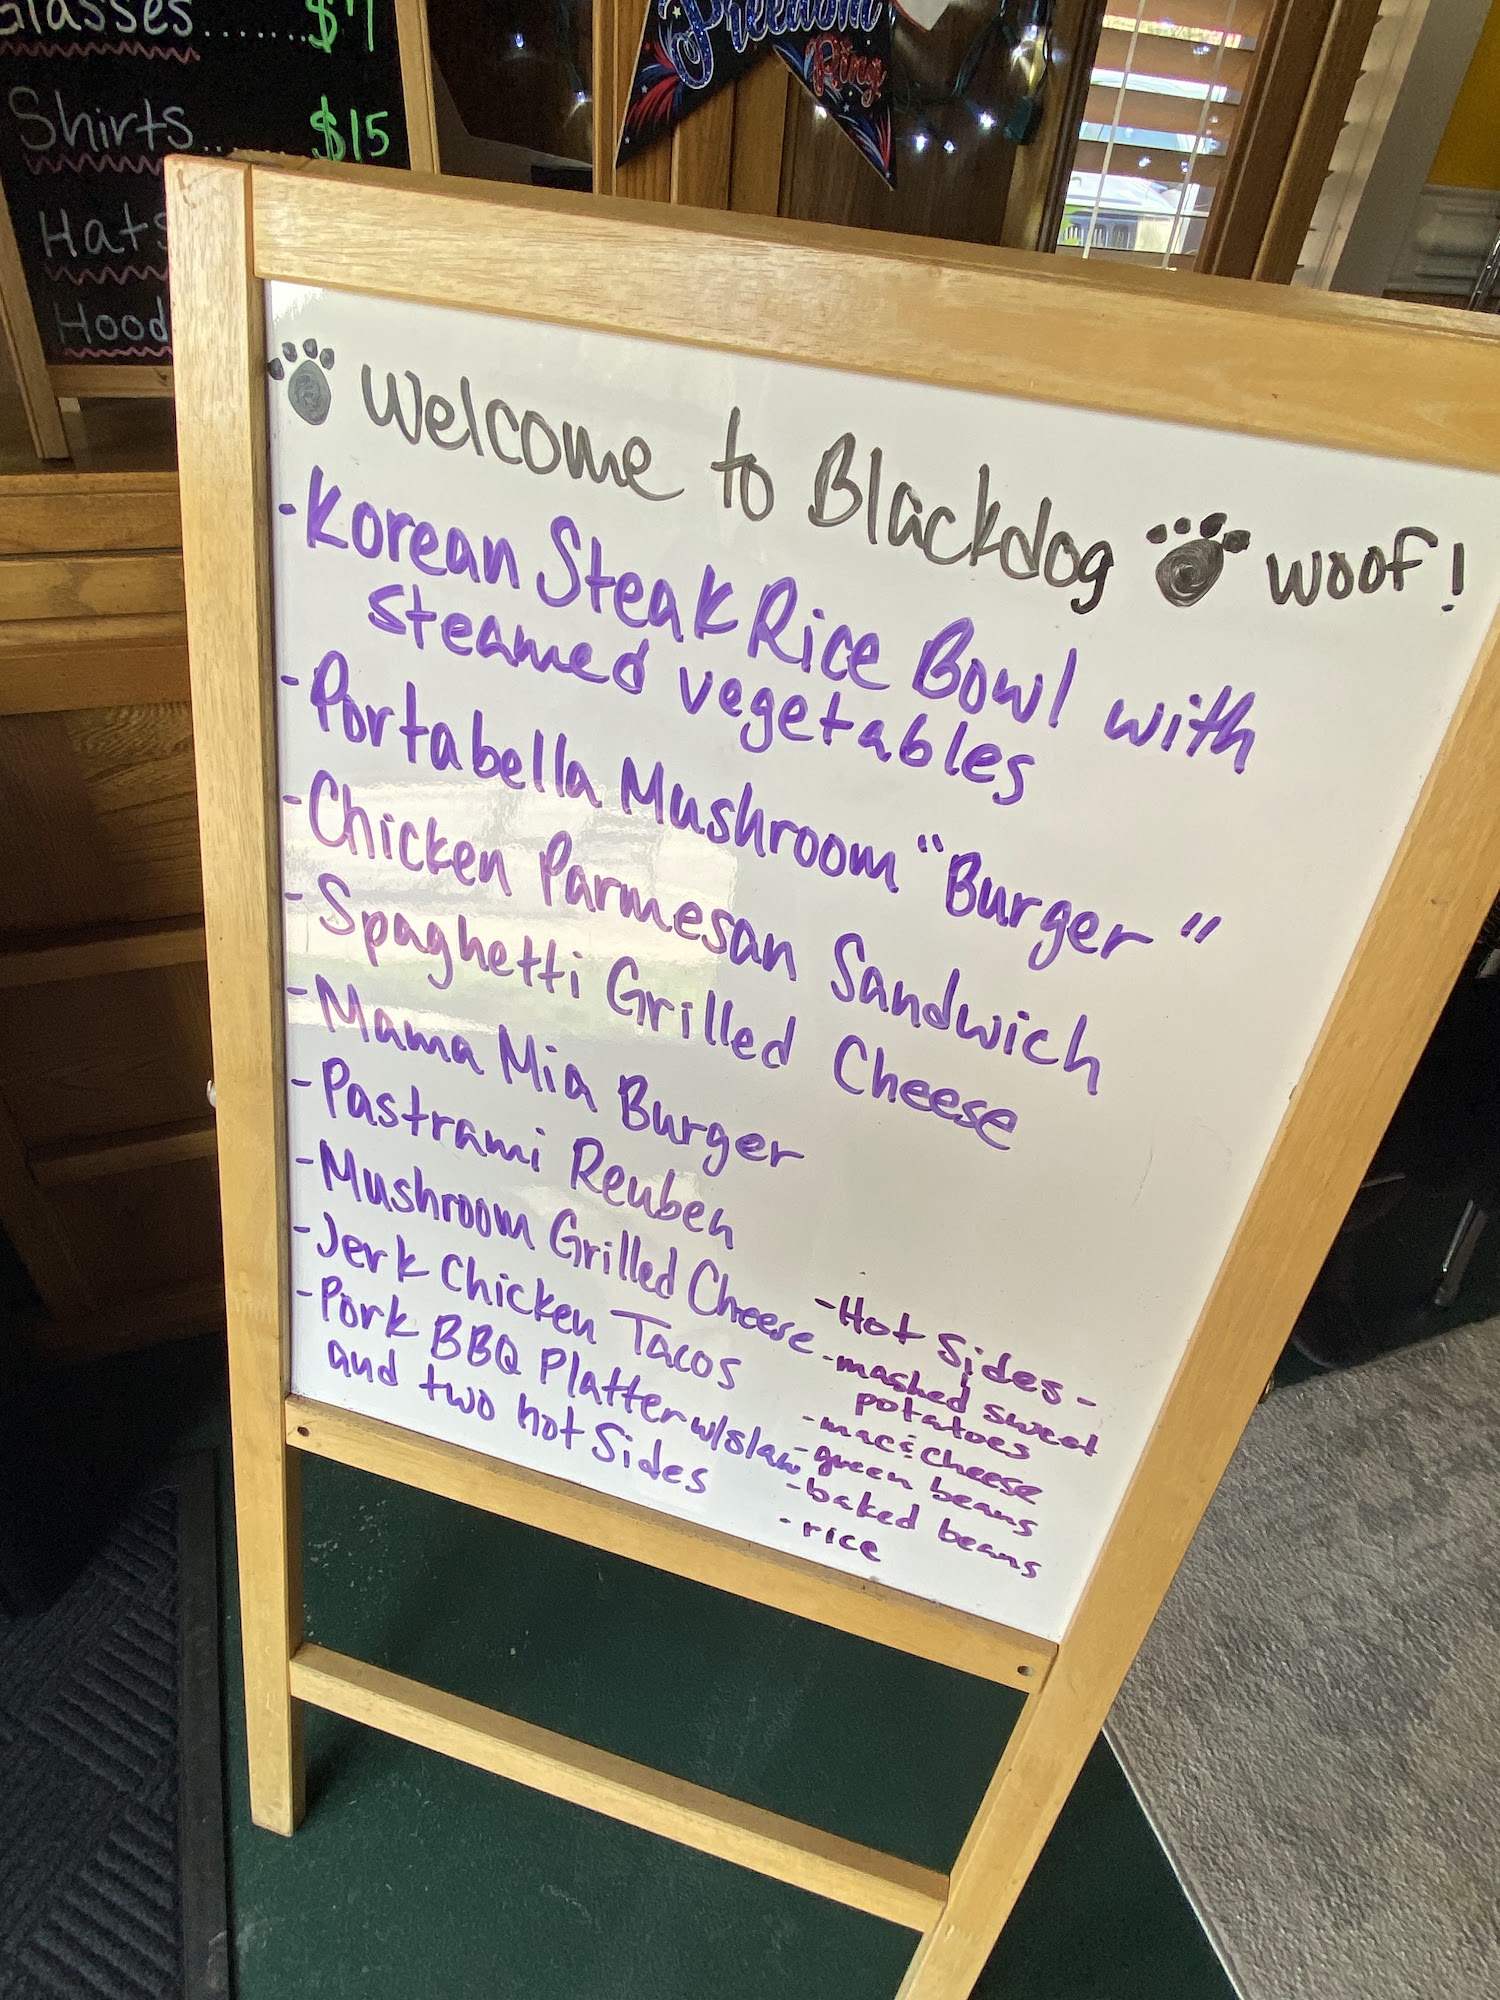 Glasses.......$7
Shirts......$15
Hats
Hood
Freedom
Ring
Welcome to Blackdog woof!
-Korean Steak Rice Bowl with
steamed vegetables
-Portabella Mushroom "Burger"
-Chicken Parmesan Sandwich
-Spaghetti Grilled Cheese
-Mama Mia Burger
-Pastrami Reuben
-Mushroom Grilled Cheese
-Jerk Chicken Tacos
-Pork BBQ Platter w/slaw
and two hot Sides
-Hot Sides-
-mashed sweet
potatoes
-mac & cheese
-green beans
-baked beans
-rice